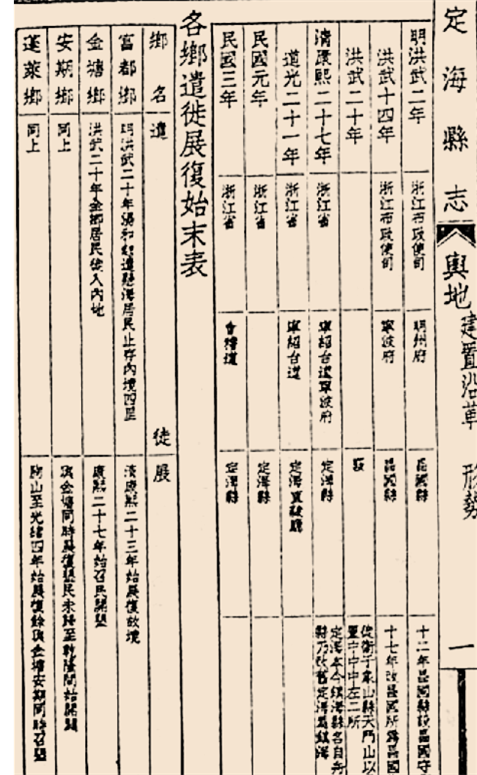 定海縣志 輿地 建置沿革 形勢 一
明洪武二年 浙江布政使司 明州府 昌國縣 十二年昌國縣設昌國守
洪武十四年 浙江布政使司 寧波府 昌國縣 十七年改昌國所為昌國
洪武二十年 廢 徙衛于象山縣天門山以
置中中中左二所
清康熙二十七年 浙江省 寧紹台道寧波府 定海縣 定海本今鎮海縣名自
縣乃改舊定海為鎮海
道光二十一年 浙江省 寧紹台道 定海直隸廳
民國元年 浙江省 定海縣
民國三年 浙江省 會稽道 定海縣
各鄉遣徙展復始末表
鄉名 遣徙 展
富都鄉 明洪武二十年湯和經遣懸海居民止存內境四里 清康熙二十三年始展復故境
金塘鄉 洪武二十年金鄉居民徙入內地 康熙二十七年始召民開墾
安期鄉 同上 與金塘同時展復墾民未歸至乾隆間始開闢
蓬萊鄉 同上 朐山至光緒四年始展復餘與金塘安期同時召墾